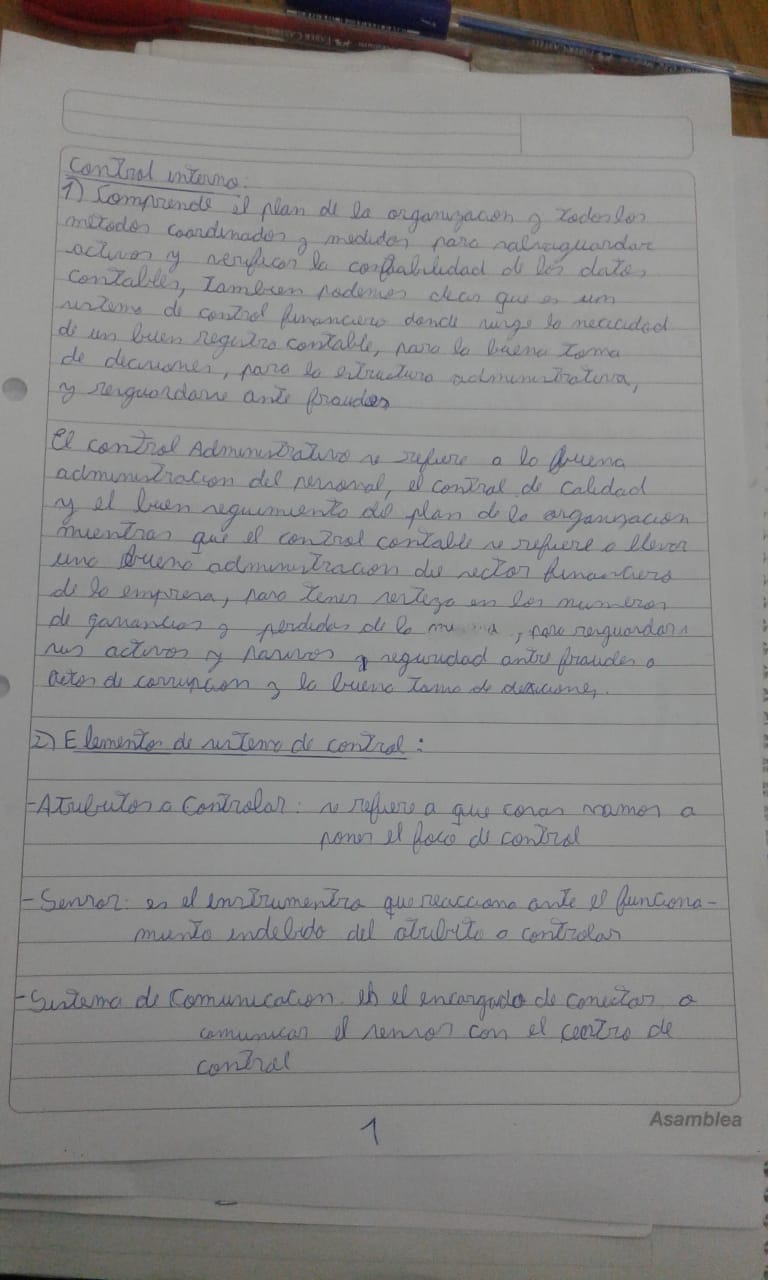 Control interno:
1) Comprende el plan de la organizacion y todos los
métodos coordinados y medidas para salvaguardar
activos y verificar la confiabilidad de los datos
contables, tambien podemos decir que es un
sistema de control financiero donde surge la necicidad
de un buen registro contable, para la buena toma
de decisiones, para la estructura administrativa,
y resguardarse ante fraudes
El control Administrativo se refiere a la buena
administracion del personal, el control de calidad
y el buen seguimiento del plan de la organizacion
mientras que el control contable se refiere a llevar
una buena administracion del sector financiero
de la empresa, para tener serteza en los numeros
de ganancias y perdidas de la , para resguardar
sus activos y pasivos y seguridad ante fraudes o
actos de corrupcion y la buena toma de desiciones.
2) Elementos de sistema de control:
-Atributos a Controlar: se refiere a que cosas vamos a
poner el foco de control
-Sensor: es el instrumento que reacciona ante el funciona-
miento indebido del atributo a controlar
-Sistema de Comunicacion. es el encargado de conectar o
comunicar el sensor con el centro de
control
1
Asamblea
FABER CASTELL